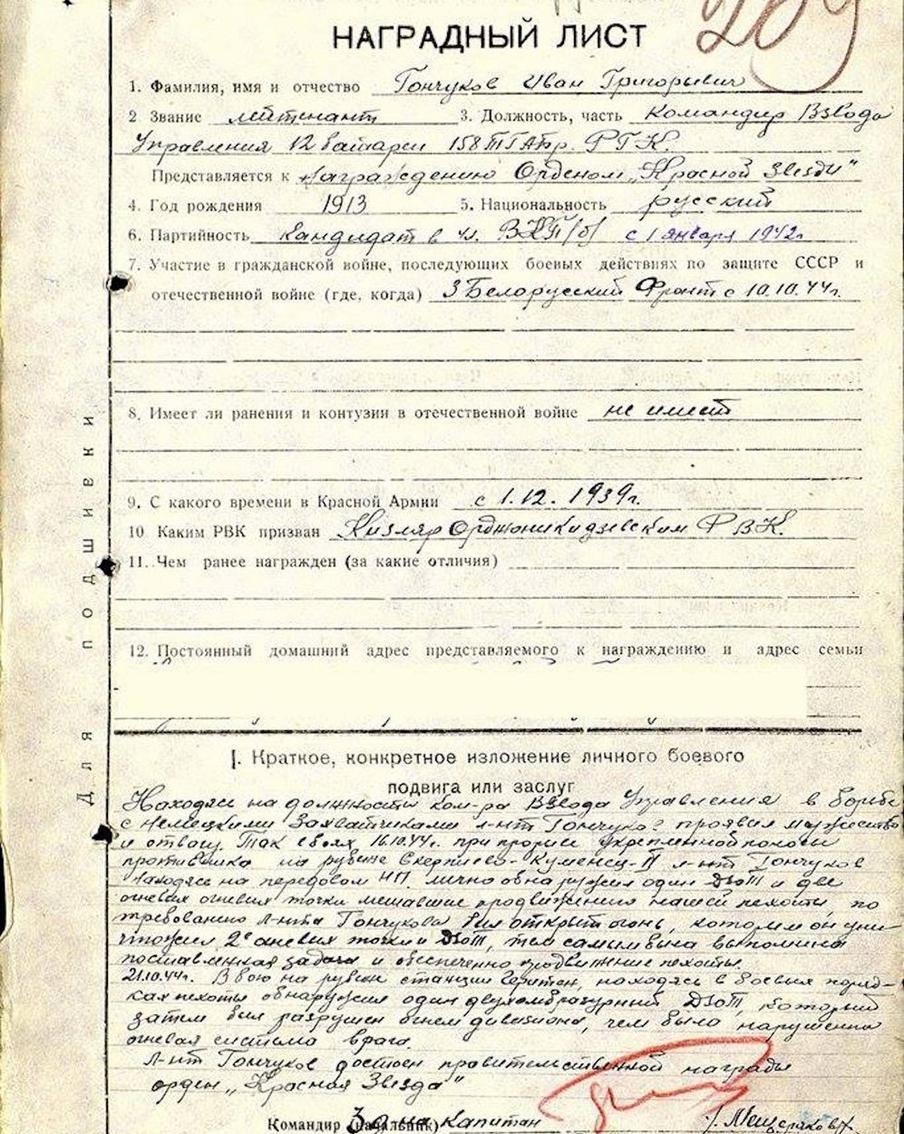 209
НАГРАДНЫЙ ЛИСТ
1. Фамилия, имя и отчество Гончуков Иван Григорьевич
2 Звание лейтенант 3. Должность, часть Командир Взвода
Управления 12 батареи 158 ТГАбр. РГК.
Представляется к награждению Орденом „Красной Звезды"
4. Год рождения 1913 5. Национальность русский
6. Партийность Кандидат в чл. ВКП/б/ с 1 января 1942г
7. Участие в гражданской войне, последующих боевых действиях по защите СССР и
отечественной войне (где, когда) 3 Белорусский Фронт с 10.10.44г.
8. Имеет ли ранения и контузии в отечественной войне не имеет
9. С какого времени в Красной Армии с 1.12.1939г.
10 Каким РВК призван Кизляр Орджоникидзевским РВК.
11. Чем ранее награжден (за какие отличия)
12. Постоянный домашний адрес представляемого к награждению и адрес семьи
Для подшивки
I. Краткое, конкретное изложение личного боевого
подвига или заслуг
Находясь на должности ком-ра Взвода Управления в борьбе
с Немецкими Захватчиками л-нт Гончуков проявил мужество
и отвагу. Так в боях 16.10.44г. при прорыве укрепленной полосы
противника на рубеже л-нт Гончуков
находясь на передовом НП. лично обнаружил один ДЗОТ и две
огневые огневия точки мешавшие продвижению нашей пехоты, по
требованию л-нта Гончукова был открыт огонь, котором он уни-
чтожил 2е огневых точки и ДЗОТ, тем самым была выполнена
поставленная задача и обеспеченно продвижение пехоты.
21.10.44г. В бою на рубеже станции находясь в боевых поряд-
ках пехоты обнаружил один двухамбразурный ДЗОТ, который
затем был разрушен огнем дивизиона, чем было нарушенна
огневая система врага.
Л-нт Гончуков достоен правительственной награды
орден „Красная Звезда"
Командир (начальник) Капитан /. Мещеряков/.